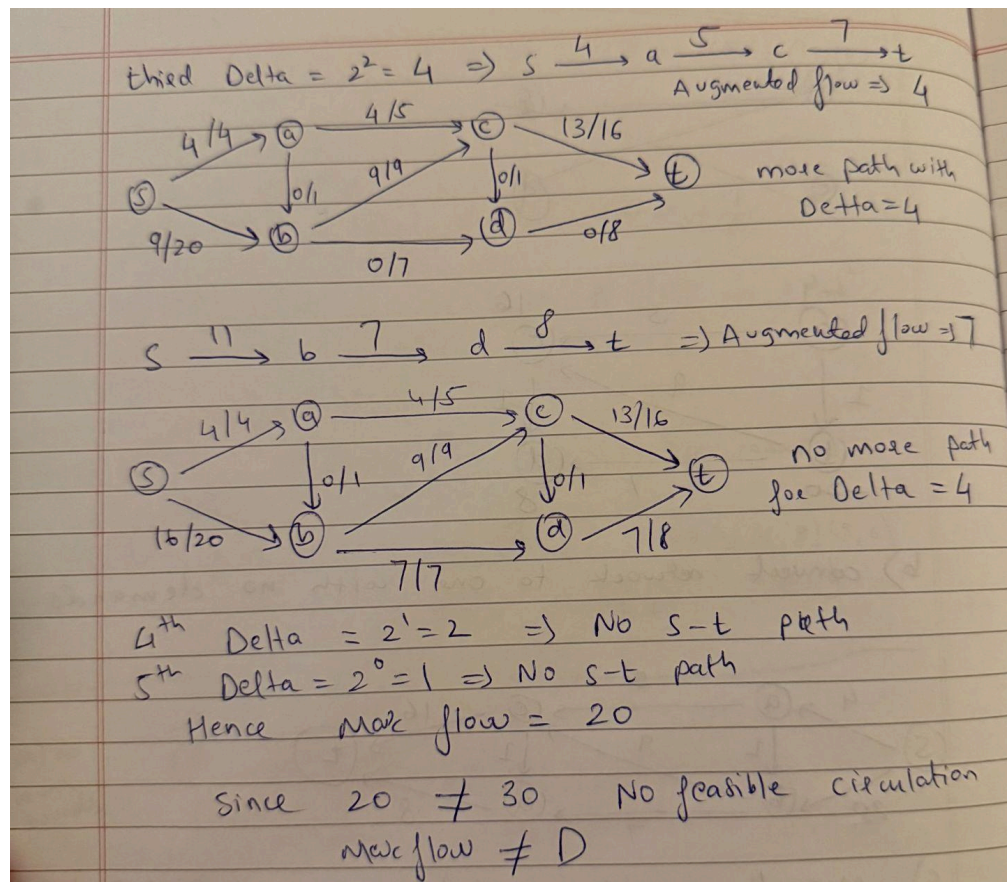 third Delta = 2² = 4 => S —4→ a —5→ c —7→ t
Augmented flow => 4
4/4 a 4/5 c 13/16
S 0/1 9/9 0/1 t more path with
Delta=4
9/20 b 0/7 d 0/8
S —11→ b —7→ d —8→ t => Augmented flow => 7
4/4 a 4/5 c 13/16
S 0/1 9/9 0/1 t no more path
for Delta = 4
16/20 b 7/7 d 7/8
4th Delta = 2¹ = 2 => No s-t path
5th Delta = 2⁰ = 1 => No s-t path
Hence Max flow = 20
Since 20 ≠ 30 No feasible circulation
Max flow ≠ D